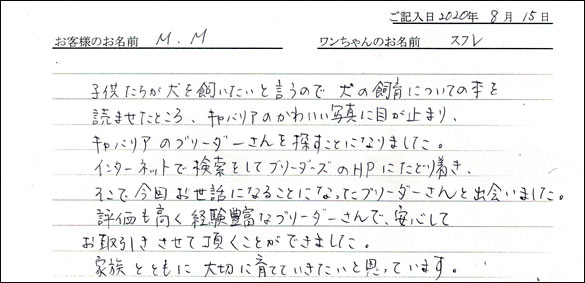 ご記入日2020年 8月 15日
お客様のお名前 M.M ワンちゃんのお名前 スフレ
子供たちが犬を飼いたいと言うので 犬の飼育についての本を
読ませたところ、キャバリアのかわいい写真に目が止まり、
キャバリアのブリーダーさんを探すことになりました。
インターネットで検索をしてブリーダーズのHPにたどり着き、
そこで今回お世話になることになったブリーダーさんと出会いました。
評価も高く経験豊富なブリーダーさんで、安心して
お取引きさせて頂くことができました。
家族とともに 大切に育てていきたいと思っています。